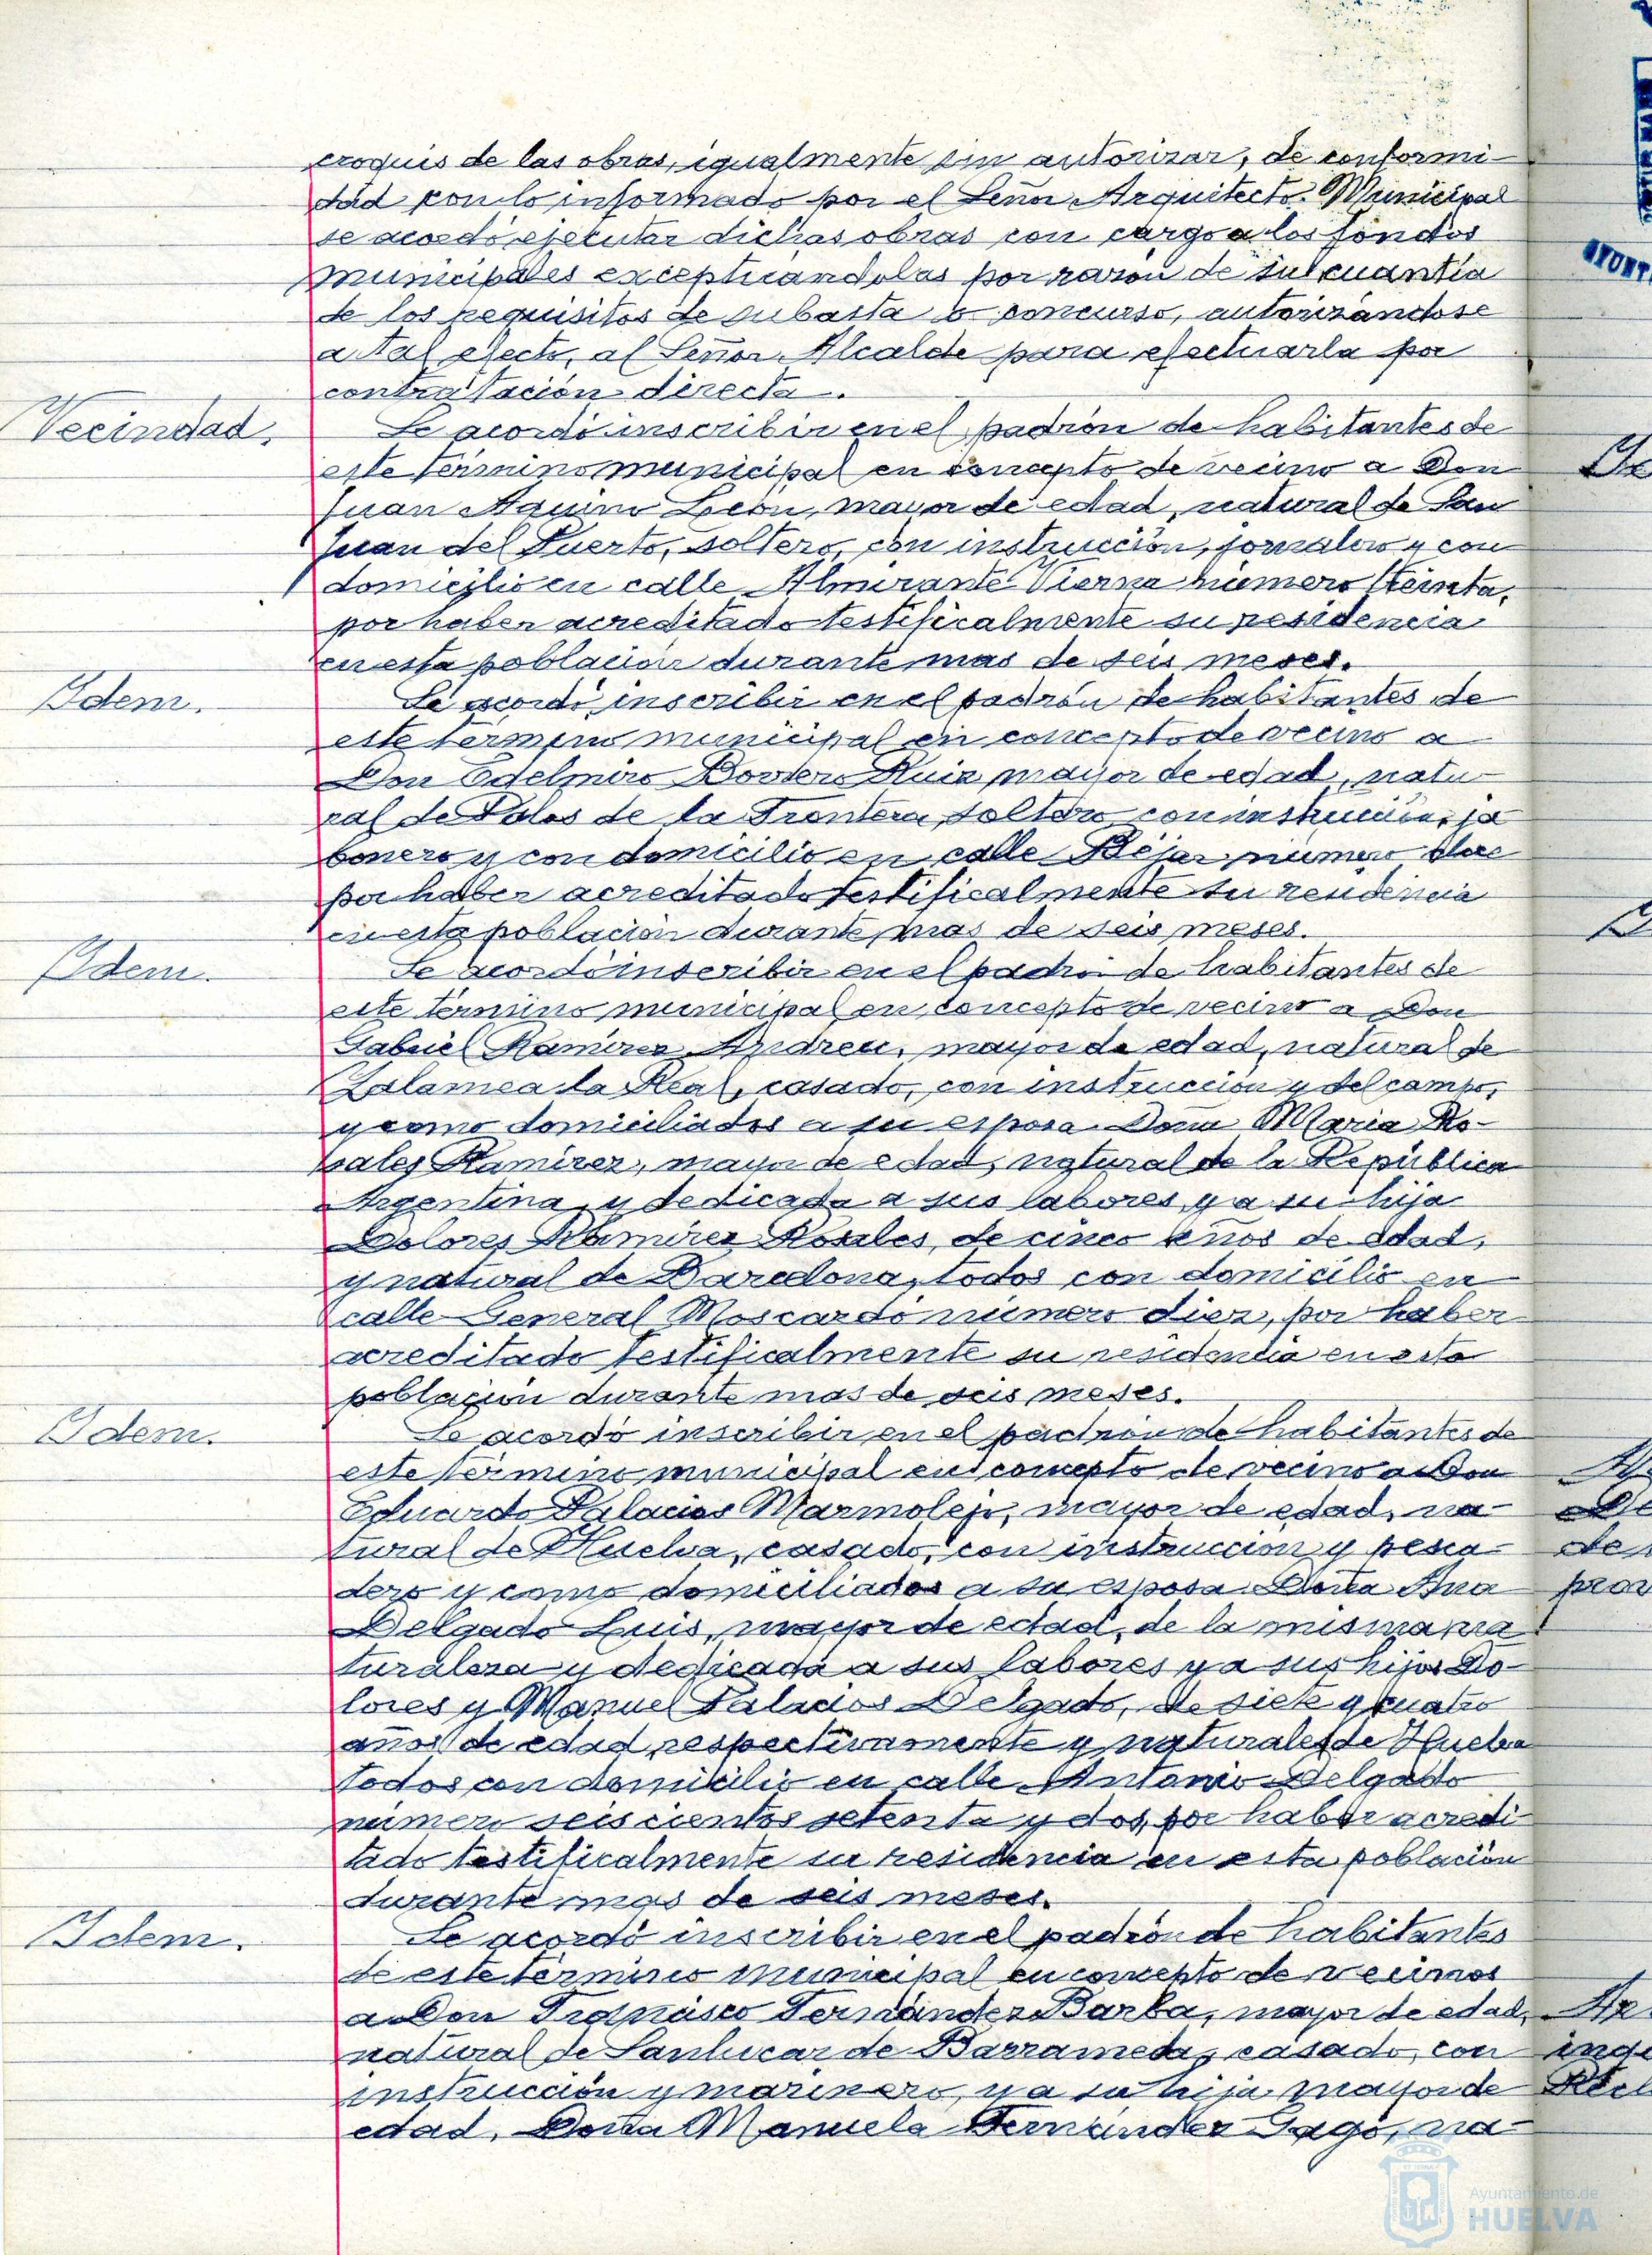 croquis de las obras, igualmente sin autorizar, de conformi-
dad con lo informado por el Señor Arquitecto Municipal
se acordó ejecutar dichas obras con cargo a los fondos
municipales exceptuándolas por razón de su cuantía
de los requisitos de subasta o concurso, autorizándose
a tal efecto, al Señor Alcalde para efectuarla por
contratación directa.
Vecindad.
Se acordó inscribir en el padrón de habitantes de
este término municipal en concepto de vecino a Don
Juan Aquino León, mayor de edad, natural de San
Juan del Puerto, soltero, con instrucción, jornalero y con
domicilio en calle Almirante Vierna número treinta,
por haber acreditado testificalmente su residencia
en esta población durante mas de seis meses.
Idem.
Se acordó inscribir en el padrón de habitantes de
este termino municipal en concepto de vecino a
Don Edelmiro Ruiz mayor de edad, natu-
ral de Palos de la Frontera, soltero con instrucción, ja
bonero y con domicilio en calle Béjar número
por haber acreditado testificalmente su residencia
en esta población durante mas de seis meses.
Idem.
Se acordó inscribir en el padrón de habitantes de
este término municipal en concepto de vecino a Don
Gabriel Ramírez Andreu, mayor de edad, natural de
Zalamea la Real, casado, con instrucción y del campo,
y como domiciliados a su esposa Doña Maria Ro-
sales Ramírez, mayor de edad, natural de la República
Argentina, y dedicada a sus labores, y a su hija
Dolores Ramírez Rosales, de cinco años de edad,
y natural de Barcelona, todos con domicilio en
calle General Moscardó número diez, por haber
acreditado testificalmente su residencia en esta
población durante mas de seis meses.
Idem.
Se acordó inscribir en el padrón de habitantes de
este término municipal en concepto de vecino a Don
Eduardo Palacios Marmolejo, mayor de edad, na-
tural de Huelva, casado, con instrucción y pesca-
dero y como domiciliados a su esposa Doña Ana
Delgado Luis, mayor de edad, de la misma na
turaleza y dedicada a sus labores y a sus hijos Do-
lores y Manuel Palacios Delgado, de siete y cuatro
años de edad respectivamente y naturales de Huelva
todos con domicilio en calle Antonio Delgado
número seiscientos setenta y dos, por haber acredi-
tado testificalmente su residencia en esta población
durante mas de seis meses.
Idem.
Se acordó inscribir en el padrón de habitantes
de este término municipal en concepto de vecinos
a Don Francisco Fernández Barba, mayor de edad,
natural de Sanlucar de Barrameda, casado, con
instrucción y marinero, y a su hija mayor de
edad, Doña Manuela Fernández Gago, na-
Ayuntamiento de
HUELVA